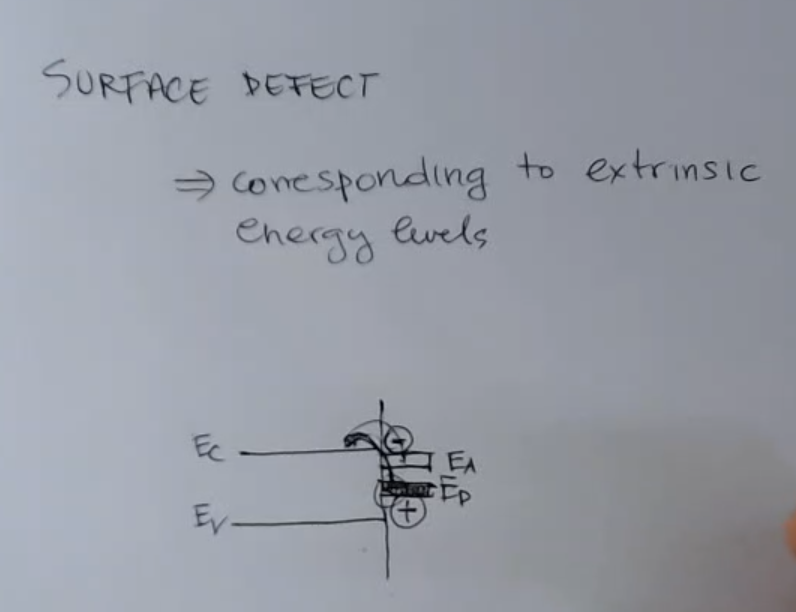 SURFACE DEFECT
⇒ corresponding to extrinsic
energy levels
Ec
-
EA
ED
+
Ev